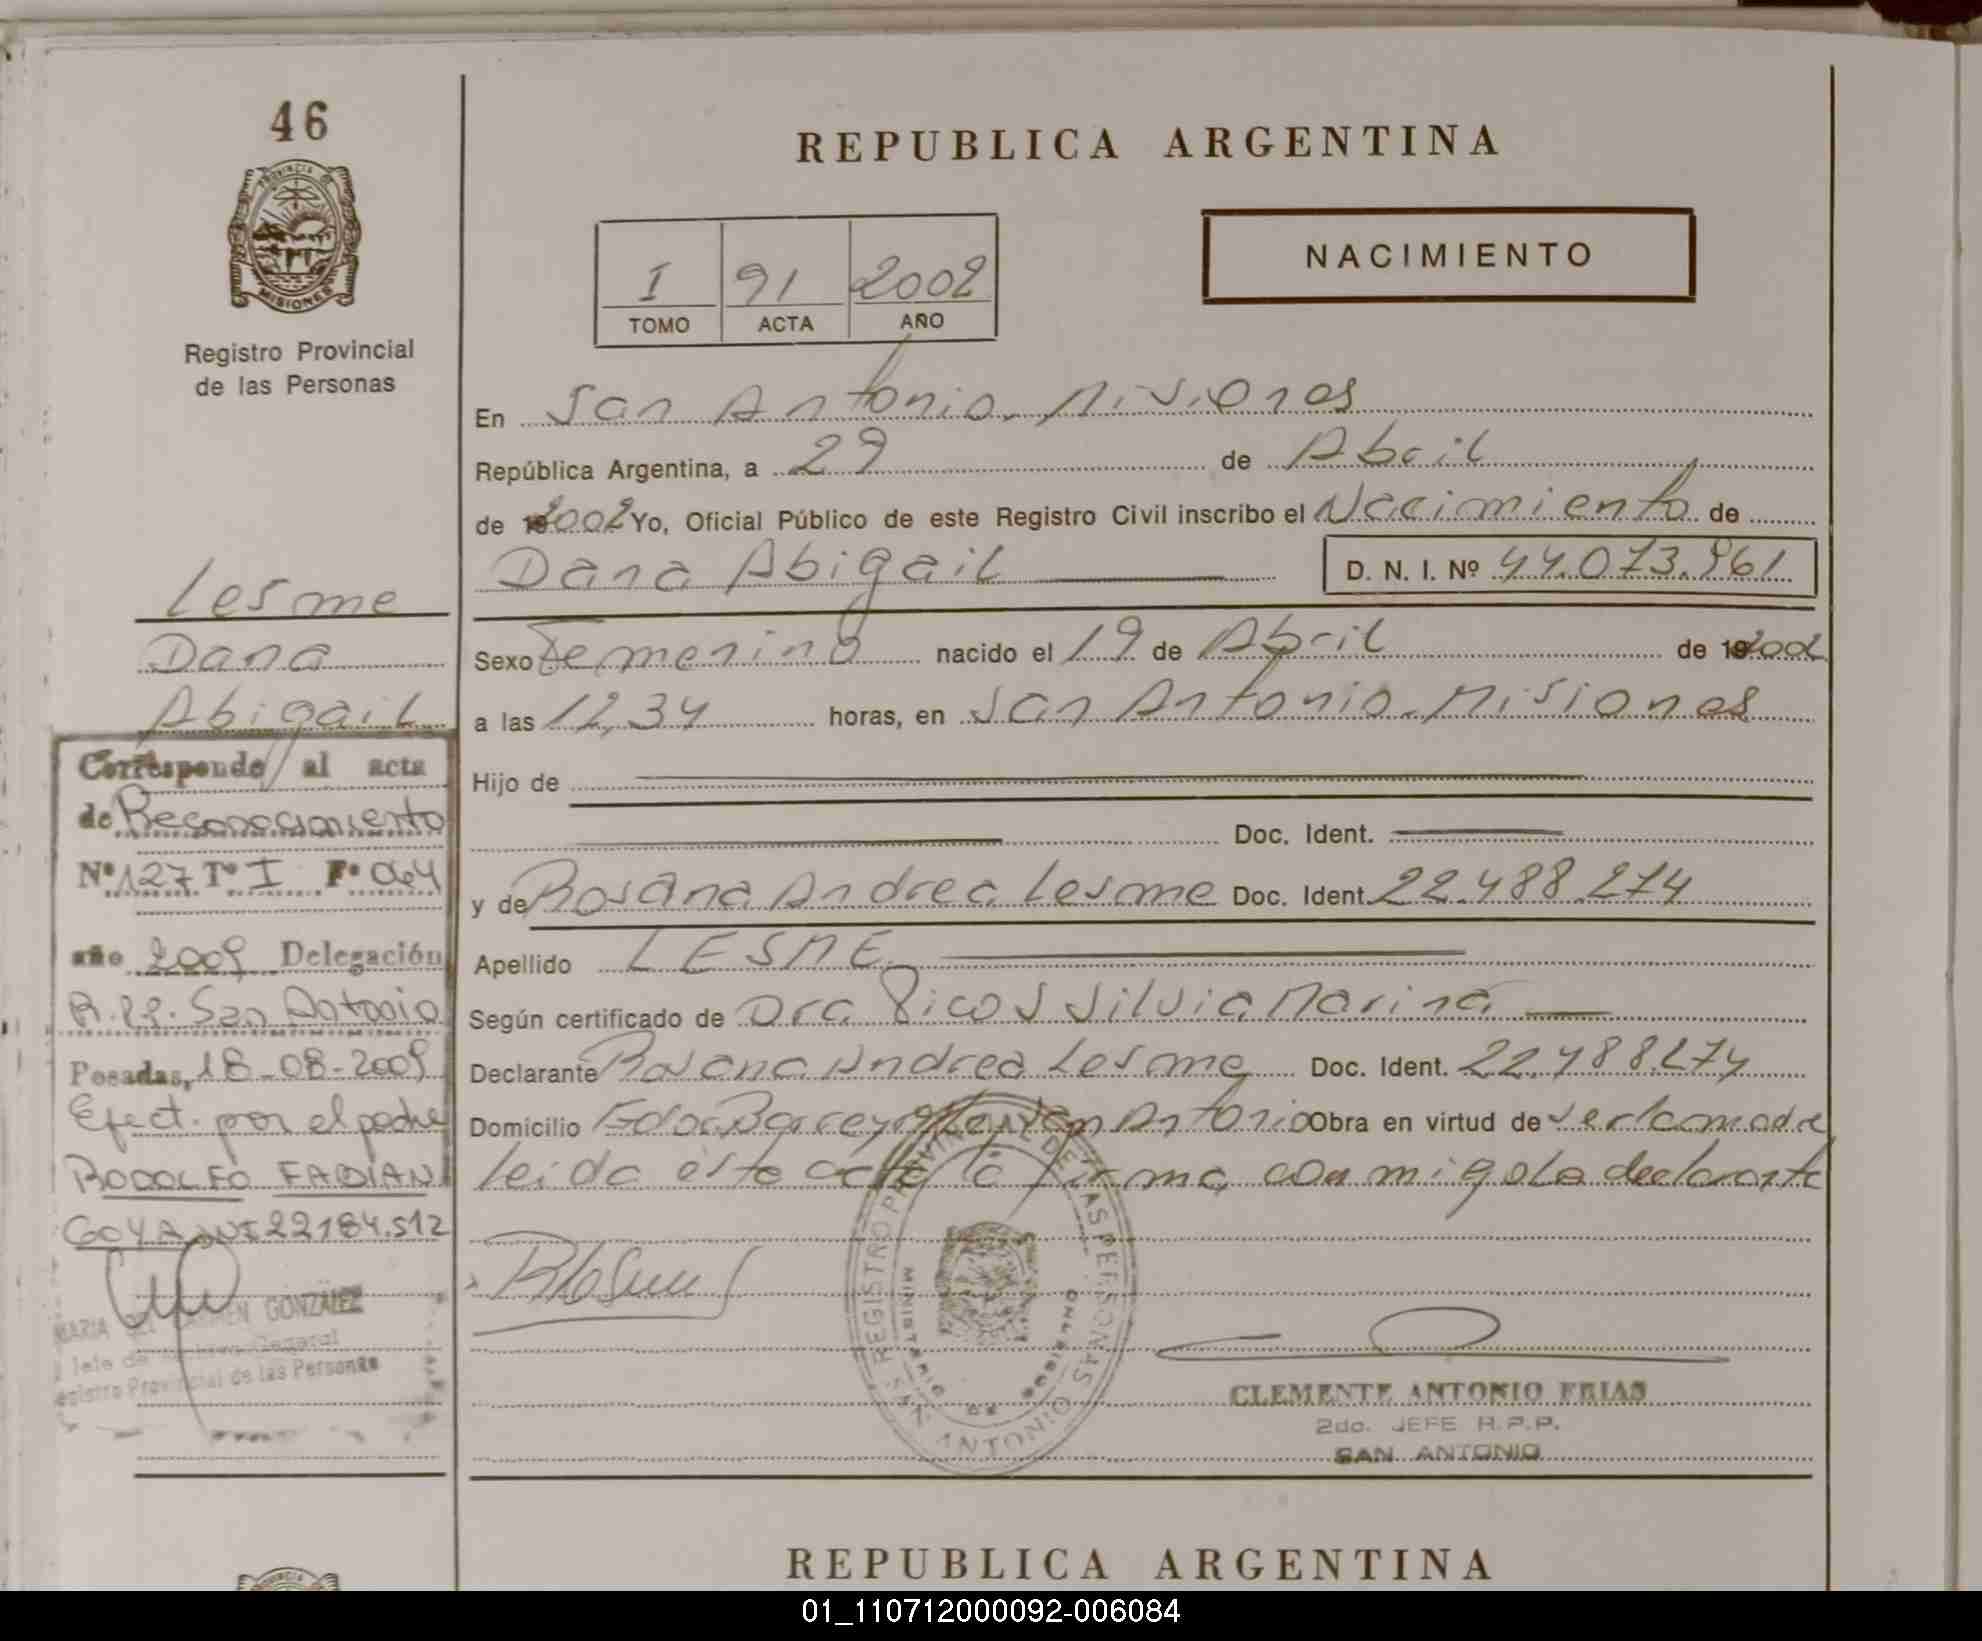 46
PROVINCIA DE
MISIONES
Registro Provincial
de las Personas
Lesme
Dana
Abigail
Corresponde al acta
de Reconocimiento
Nº 127 Tº I Fº 064
año 2009 Delegación
R.P.P. San Antonio
Posadas, 18-08-2009
Efect. por el padre
RODOLFO FABIAN
GOYA DNI 22184.512
MARIA DEL CARMEN GONZALEZ
Jefe de General
Registro Provincial de las Personas
REPUBLICA ARGENTINA
NACIMIENTO
I 91 2002
TOMO ACTA AÑO
En San Antonio. Misiones
República Argentina, a 29 de Abril
de 2002 Yo, Oficial Público de este Registro Civil inscribo el Nacimiento de
Dana Abigail D. N. I. Nº 44.073.961
Sexo Femenino nacido el 19 de Abril de 2002
a las 12,34 horas, en San Antonio. Misiones
Hijo de
Doc. Ident.
y de Rosana Andrea Lesme Doc. Ident. 22.488.274
Apellido LESME
Según certificado de Dra Picos Silvia Marina
Declarante Rosana Andrea Lesme Doc. Ident. 22.488.274
Domicilio San Antonio Obra en virtud de ser la madre
leida esta acta la firma conmigo la declarante
REGISTRO PROVINCIAL DE LAS PERSONAS
MINISTERIO DE GOBIERNO
SAN ANTONIO
CLEMENTE ANTONIO FRIAS
2do. JEFE R.P.P.
SAN ANTONIO
REPUBLICA ARGENTINA
01_110712000092-006084